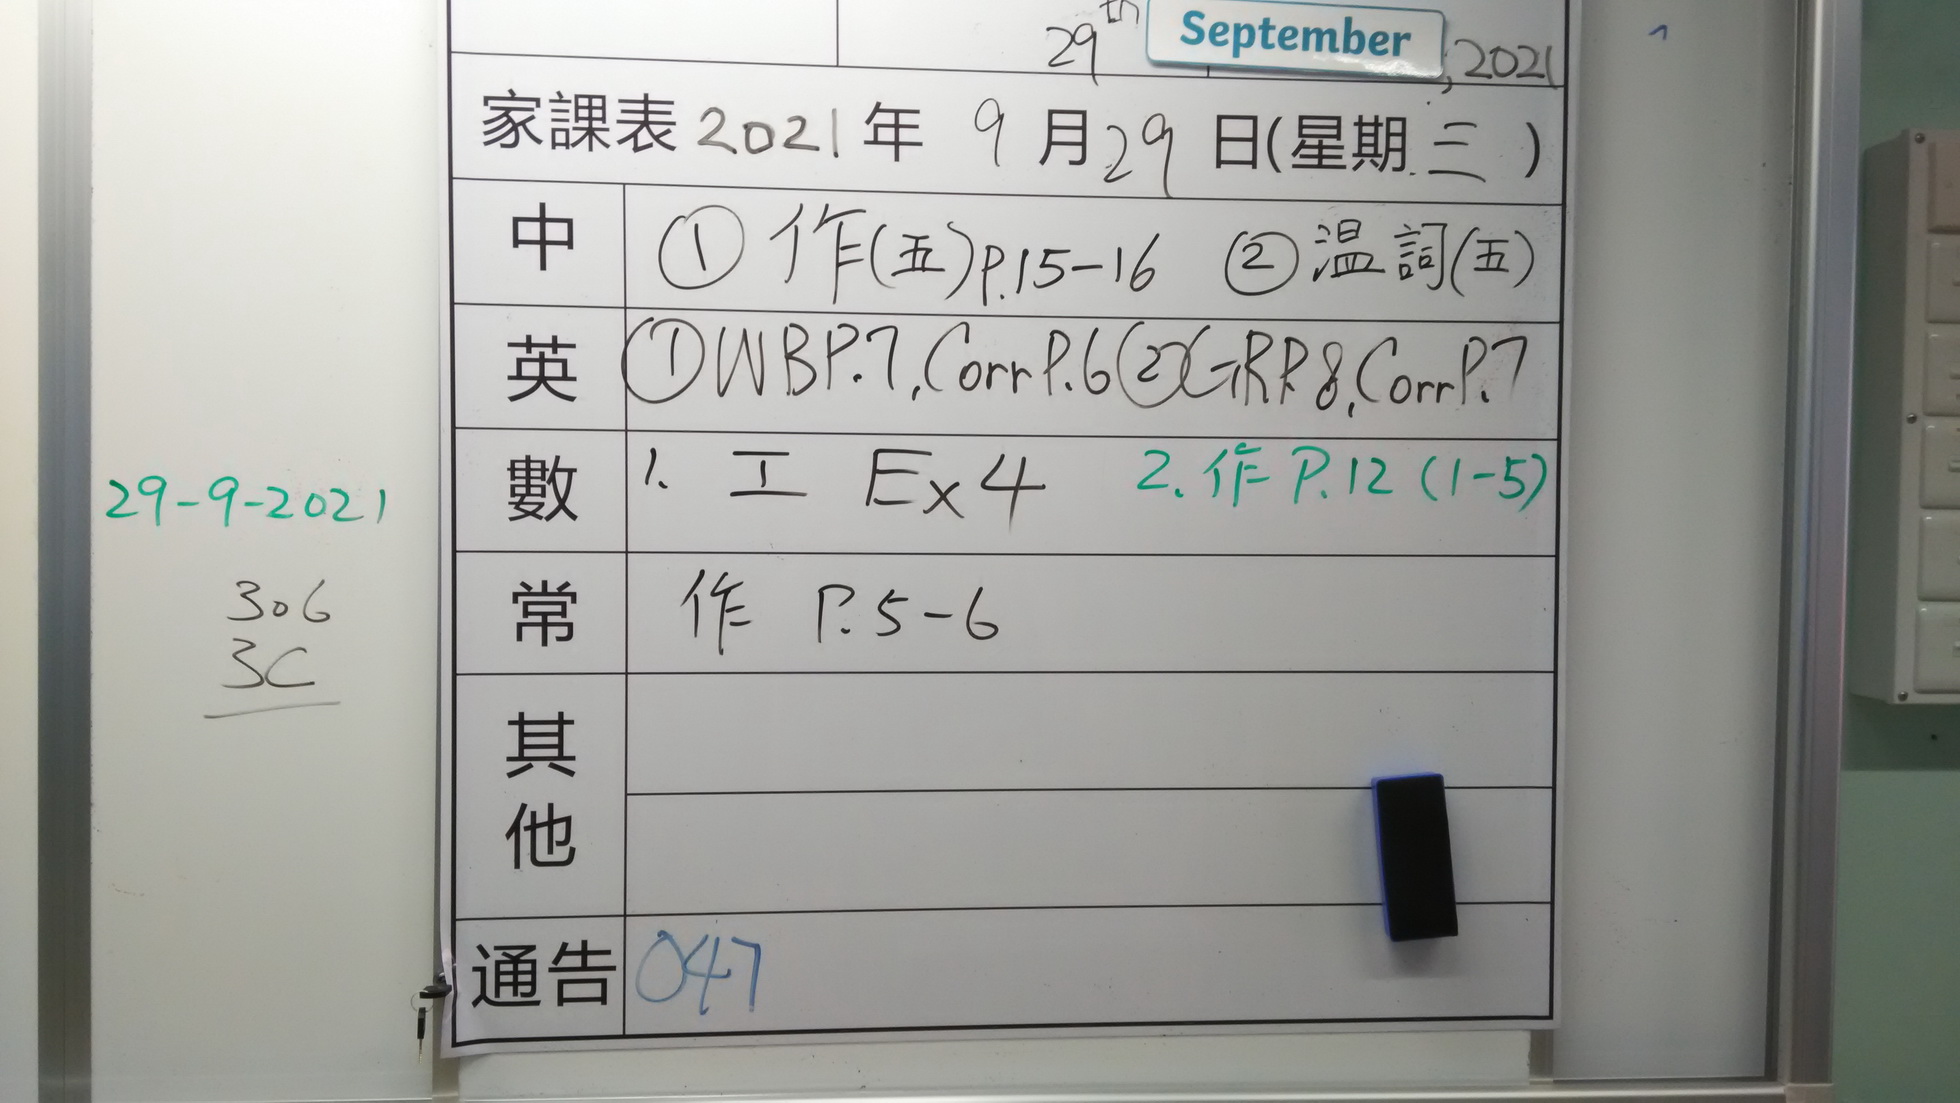 29th September, 2021
家課表 2021 年 9 月 29 日(星期 三 )
中 ① 作(五)P.15-16 ② 温詞(五)
英 ① WB P.7, Corr P.6 ② GR P.8, Corr P.7
數 1. 工 Ex 4 2. 作 P.12 (1-5)
29-9-2021
常 作 P.5-6
306
3C
其他
通告 047